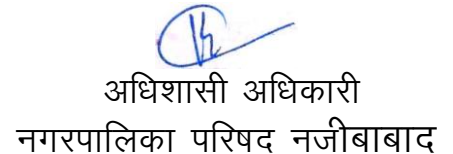 अधिशासी अधिकारी
नगरपालिका परिषद नजीबाबाद